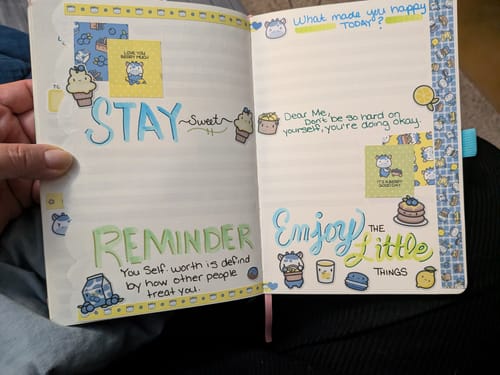 LOVE YOU
BERRY MUCH
STAY ~Sweet~
REMINDER
You Self. worth is defind
by how other people
treat you.
What made you happy
TODAY?
Dear Me,
Don't be so hard on
yourself, you're doing okay.
IT'S A BERRY
GOOD DAY
Enjoy THE
Little
THINGS